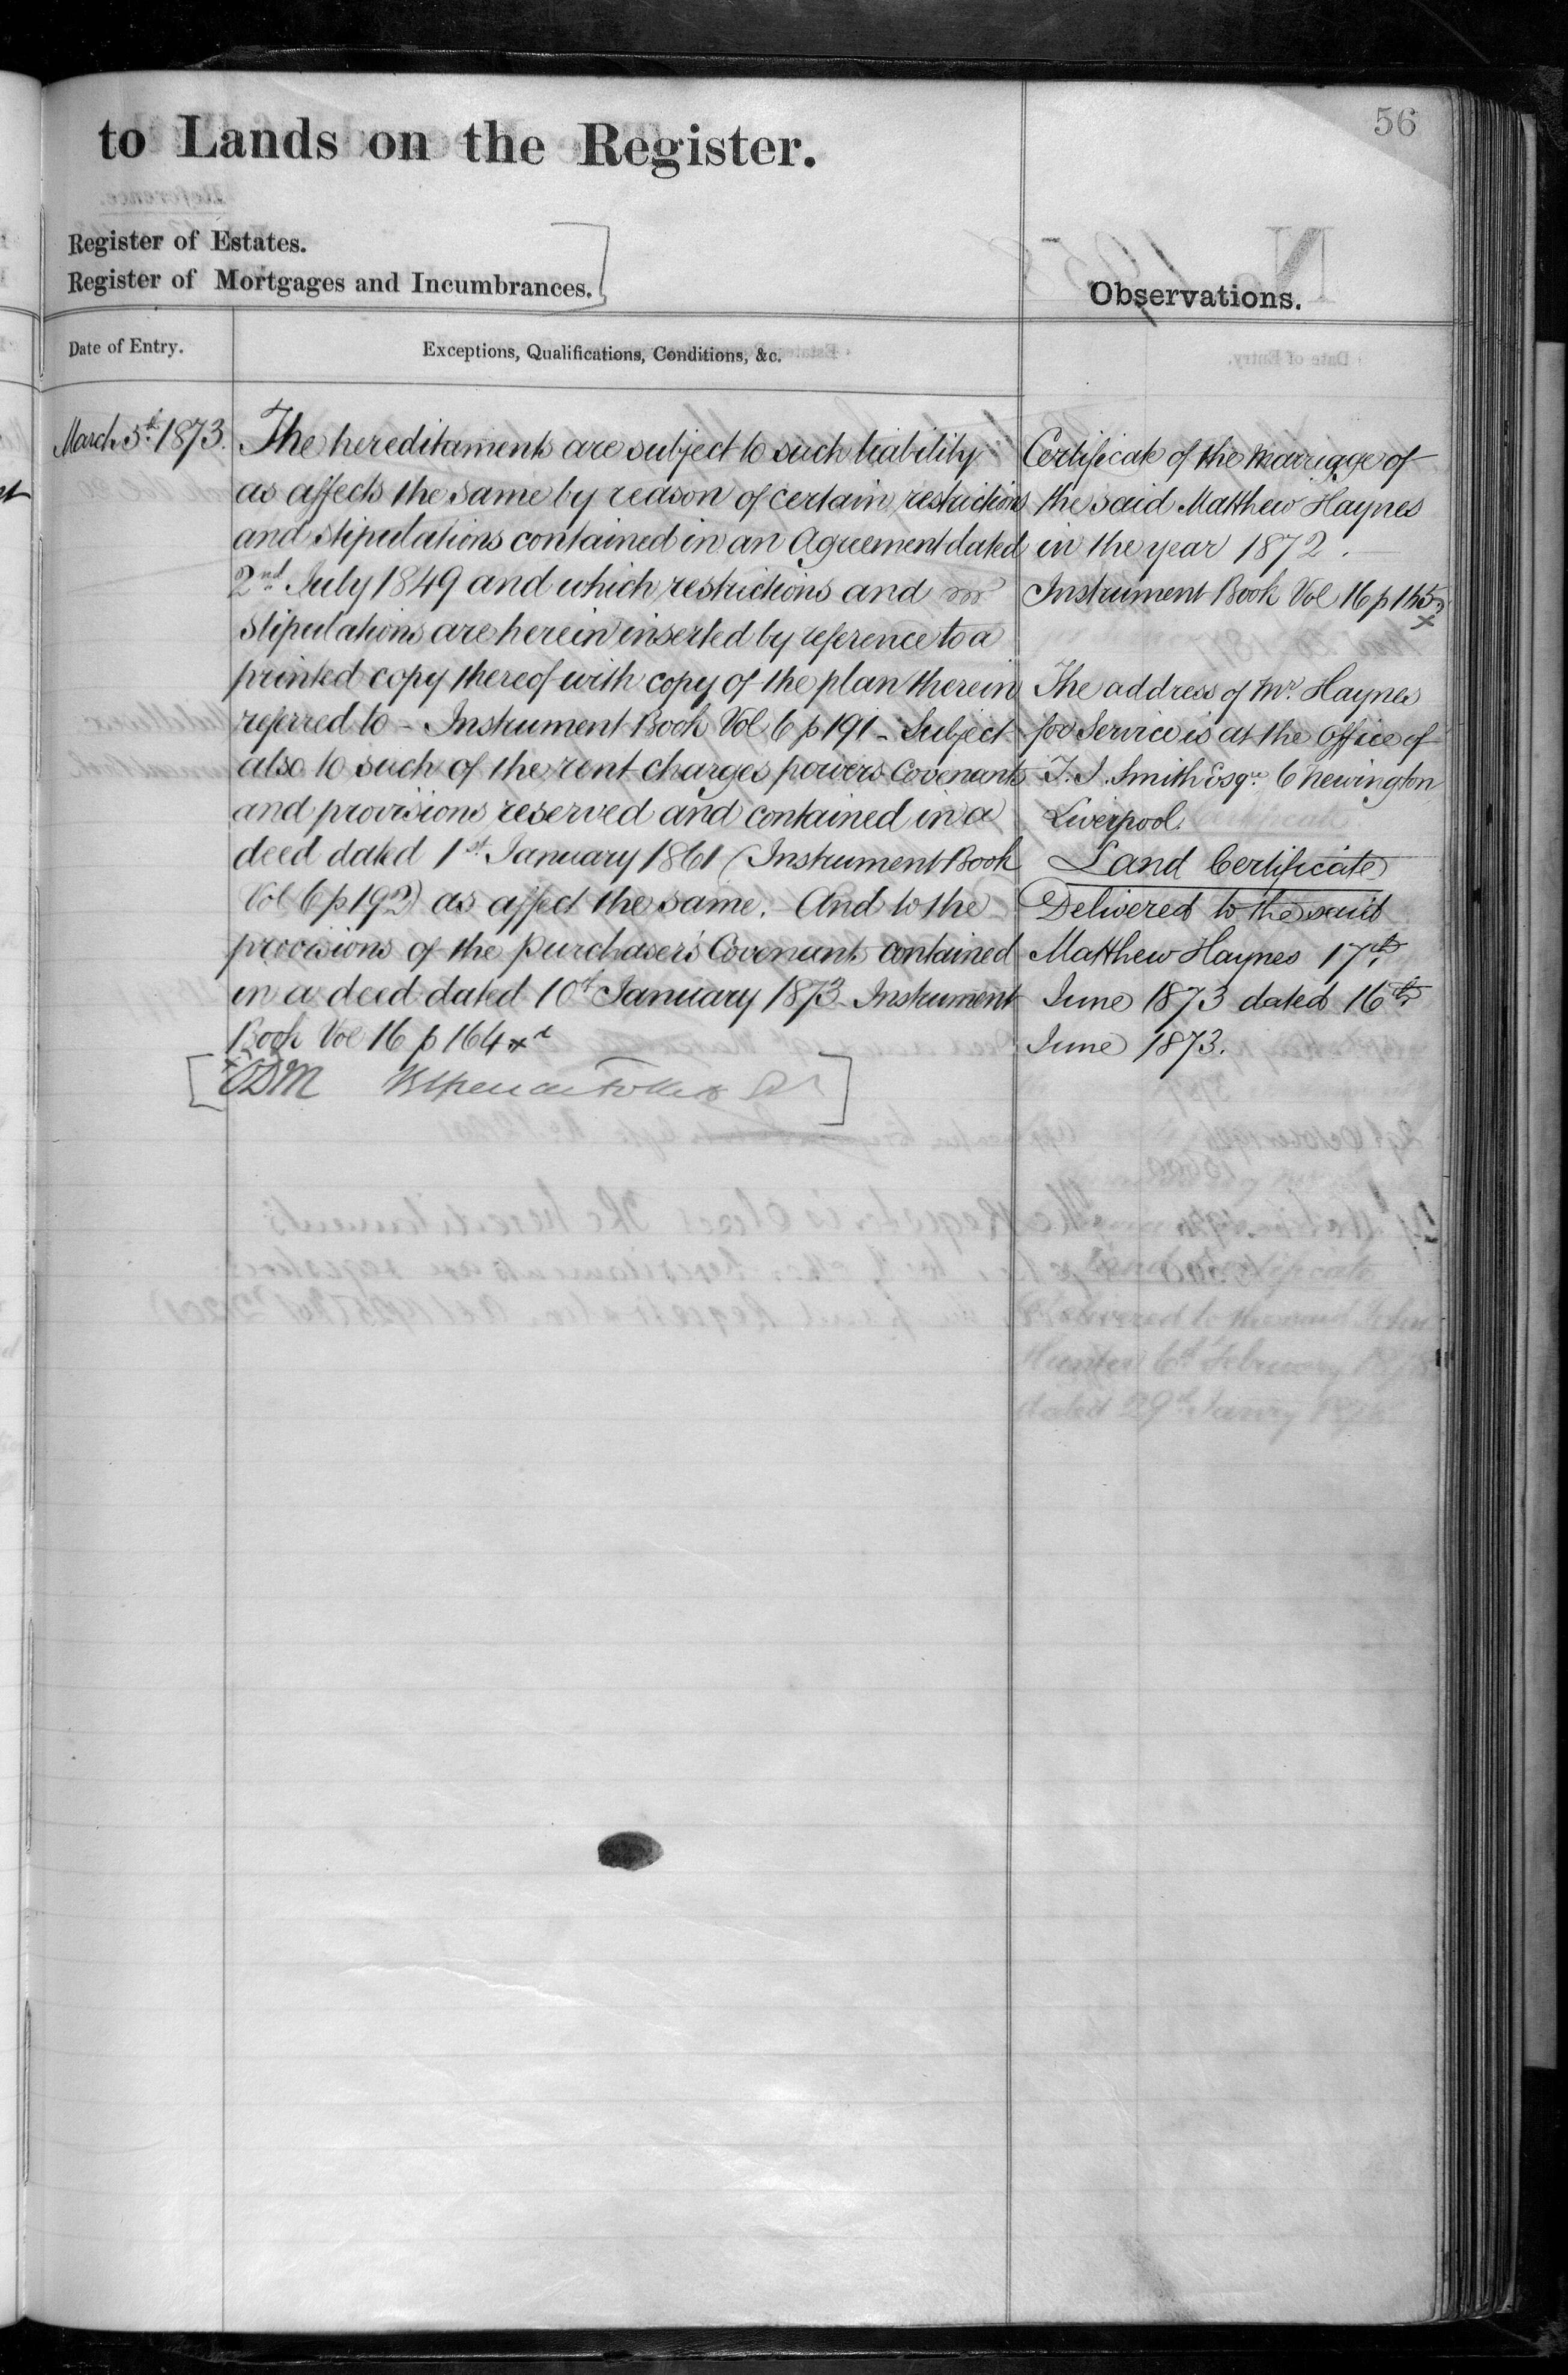 56
to Lands on the Register.
Register of Estates.
Register of Mortgages and Incumbrances.
Observations.
Date of Entry.
Exceptions, Qualifications, Conditions, &c.
March 5th 1873.
The hereditaments are subject to such liability
as affects the same by reason of certain restrictions
and stipulations contained in an Agreement dated
2nd July 1849 and which restrictions and
stipulations are herein inserted by reference to a
printed copy thereof with copy of the plan therein
referred to - Instrument Book Vol 6 p 191 - Subject
also to such of the rent charges powers Covenants
and provisions reserved and contained in a
deed dated 1st January 1861 (Instrument Book
Vol 6 p 192) as affect the same. And to the
provisions of the purchaser's Covenant contained
in a deed dated 10th January 1873 Instrument
Book Vol 16 p 164
Certificate of the Marriage of
the said Matthew Haynes
in the year 1872.
Instrument Book Vol 16 p 165
The address of Mr. Haynes
for Service is at the Office of
T. J. Smith Esqre 6 Newington
Liverpool.
Land Certificate
Delivered to the said
Matthew Haynes 17th
June 1873 dated 16th
June 1873.